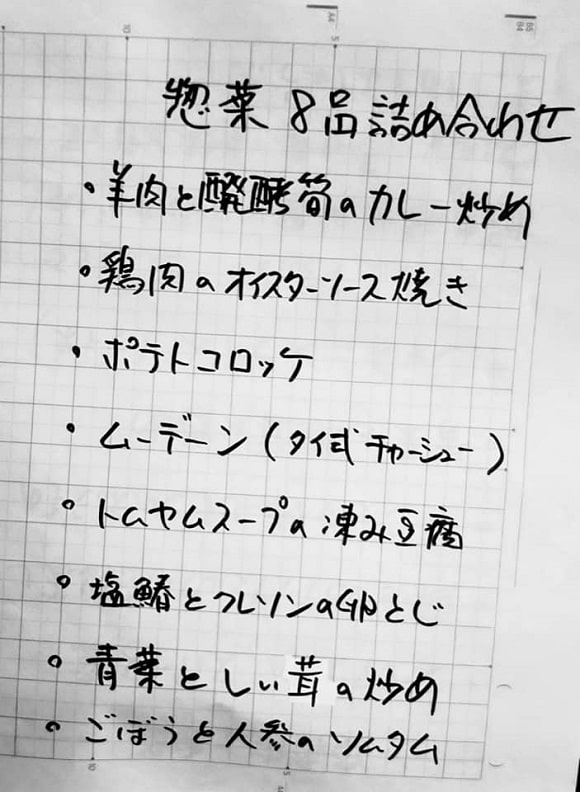 惣菜 8品詰め合わせ
・羊肉と醗酵筍のカレー炒め
・鶏肉のオイスターソース焼き
・ポテトコロッケ
・ムーデーン(タイ式チャーシュー)
・トムヤムスープの凍み豆腐
・塩鰆とクレソンの卵とじ
・青菜としい茸の炒め
・ごぼうと人参のソムタム
A4
5
B5
B4
10
10
5